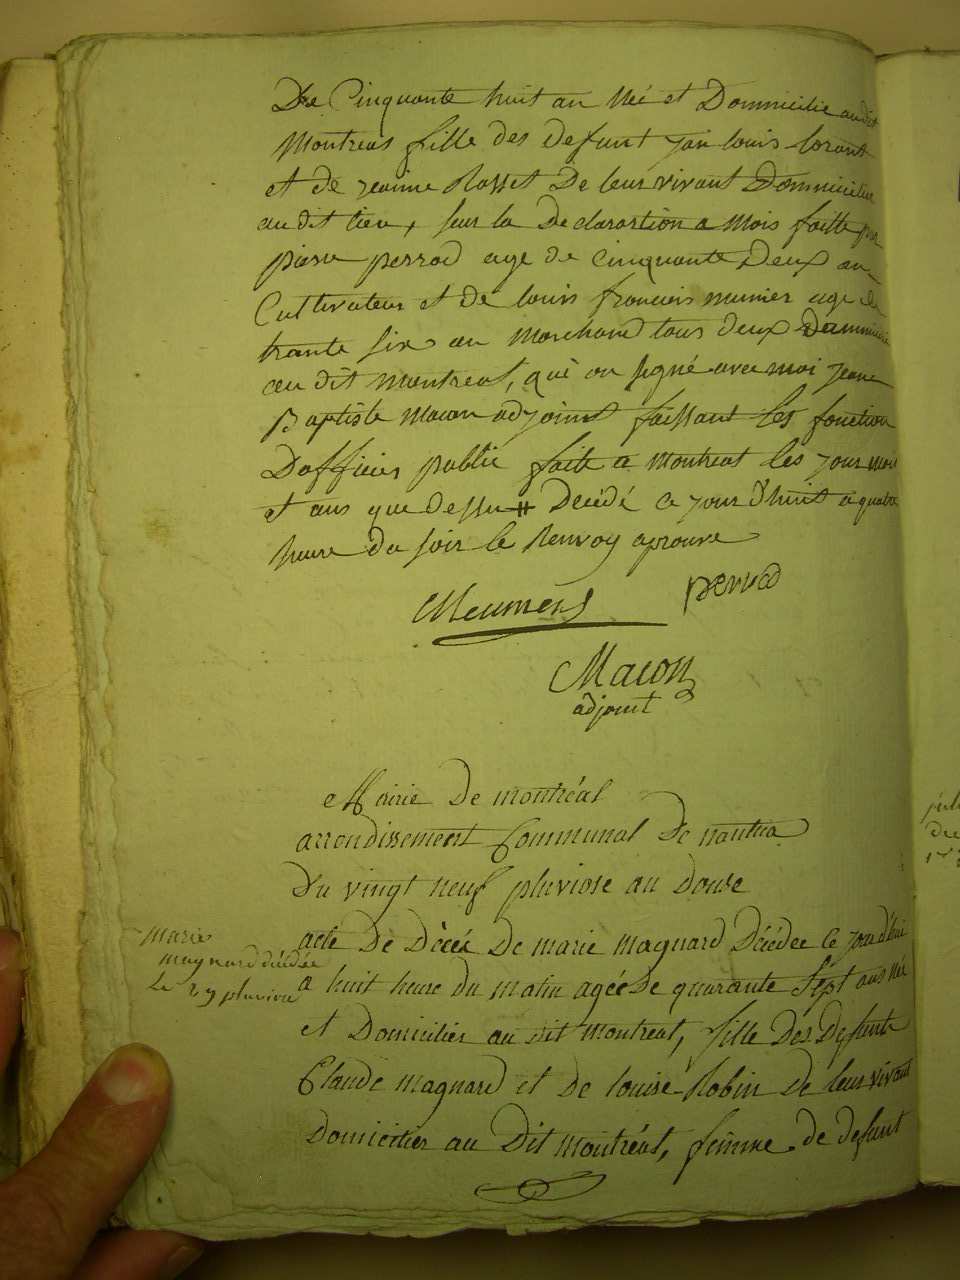 De Cinquante huit an Né et Dommicilie audit
Montreas fille des defunt jan louis lorant
et de jeanne Rosset De leur vivant Dommicilie
au dit lieu, sur la Declarartion a Mois faitte par
piere perrod age de Cinquante Deux an
Cultivateur et de louis francois munier age de
trante six an Marchand tous deux Dammicilie
au dit montreat, qui on signé avec moi jean
Baptiste Macon adjoint faissant les fonction
Dofficier public faite a montreat les jour mois
et ans que dessu # Decédé ce jour d'huit a quatre
heure du soir le Renvoy aprouve
perrod
Macon
adjoint
Mairie De montréal
arrondissement Communal De nantua
Du vingt neuf pluviose an douse
marie
magnard décédée
le 29 pluviose
acte De Décée De marie magnard Décédee le jour d'hui
a huit heure Du matin agée De quarante sépt ans Née
et Domicilier au dit montreat, fille Des Defunts
Claude magnard et De louise Robin De leur vivant
Domicilier au Dit montréat, femme de defunt